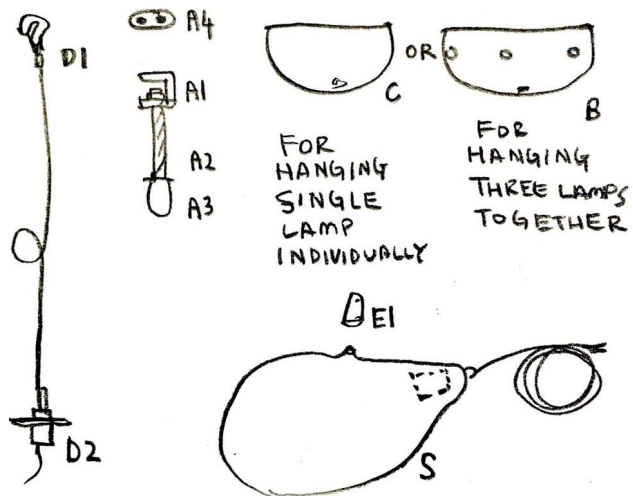 D1
A4
A1
A2
A3
C
OR
B
FOR
HANGING
SINGLE
LAMP
INDIVIDUALLY
FOR
HANGING
THREE LAMPS
TOGETHER
E1
D2
S